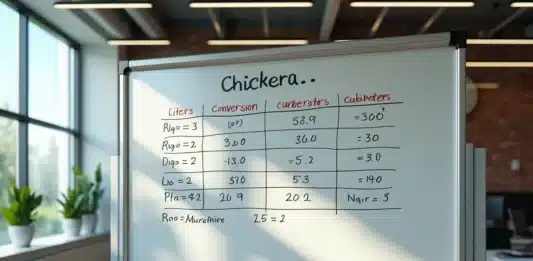 Chickera..
Liters Conversion Curberators Cubimoters
Rigo = 3 (or) 58.9 =300'
Rigo = 2 36.0 = 30
Digo = 2 -13.0 =5.2 = 3.0
Lio = 2 570 53 = 140
Pla = 42 20 9 20 2 Nair = 3
Roo = 25 = 2